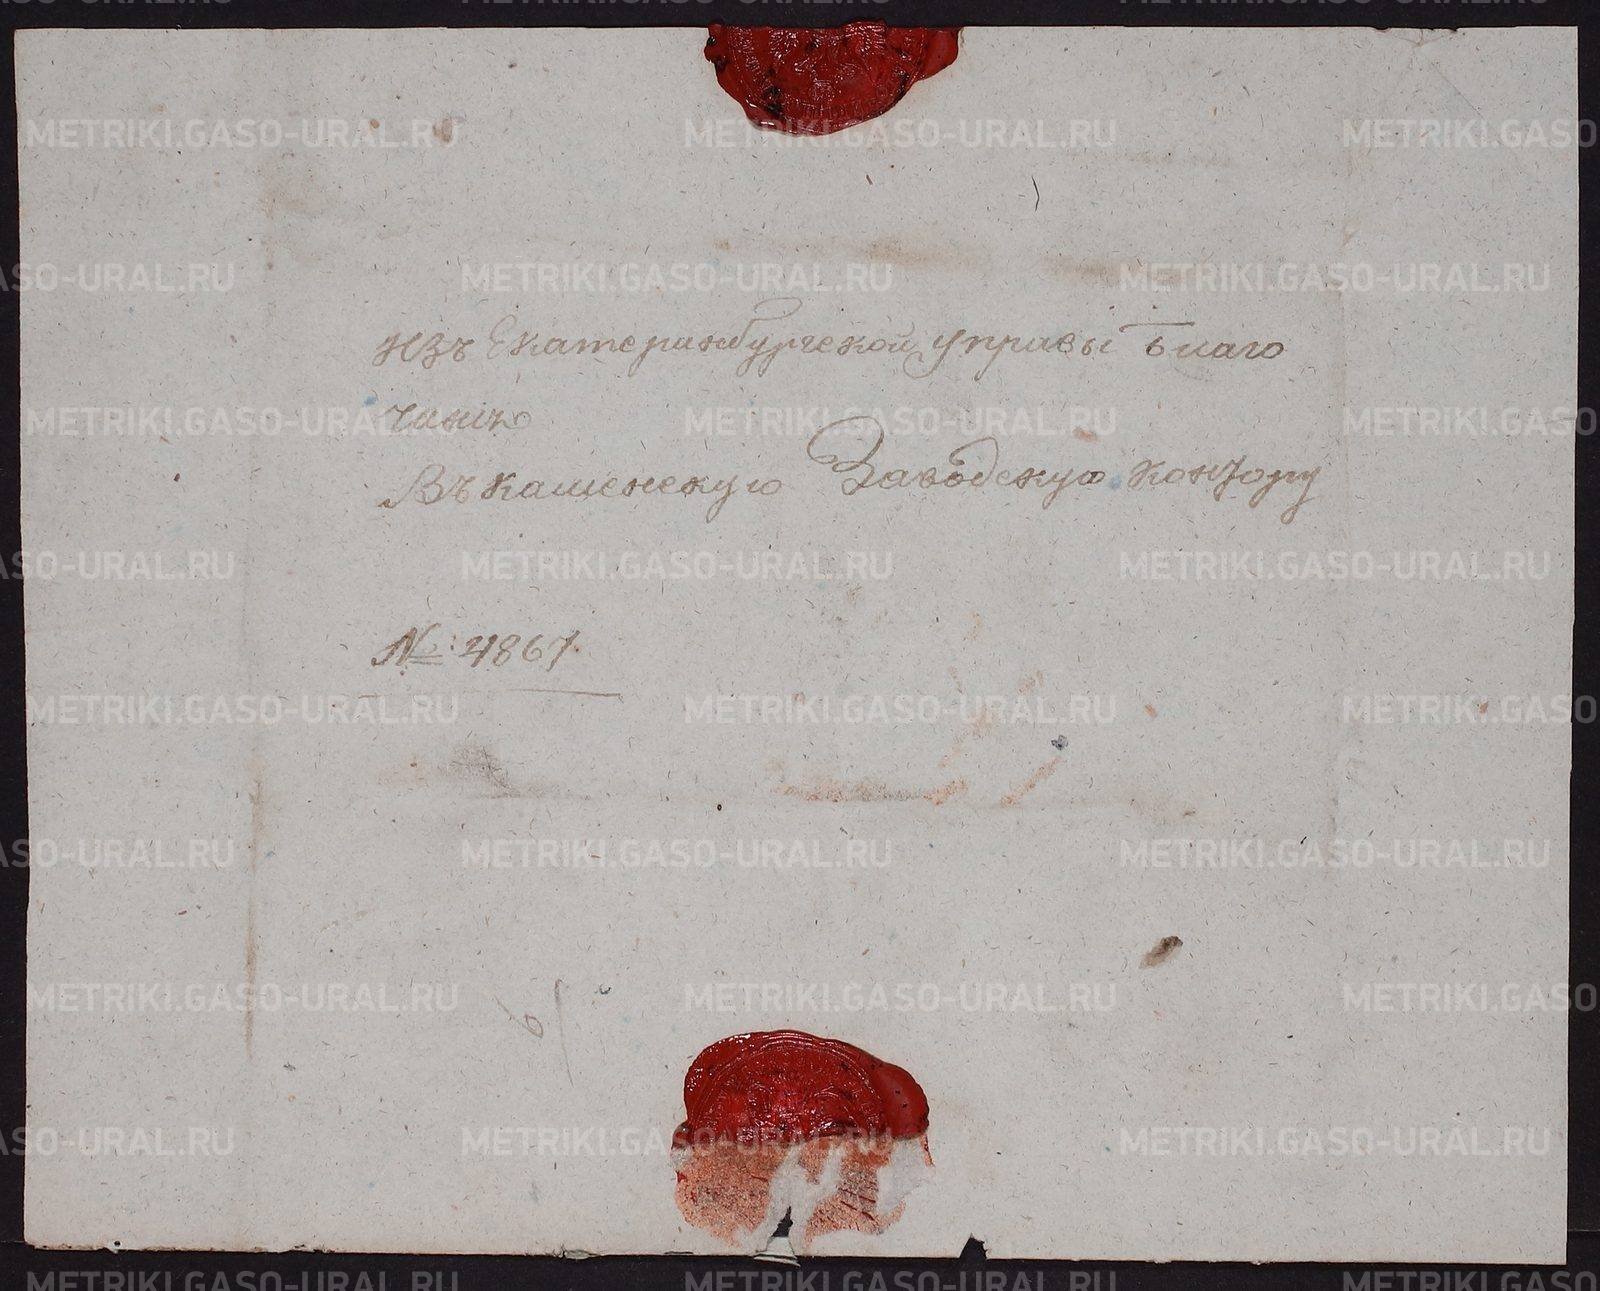 изъ Екатеринбургской управы благо
чинiя
Въ каменскую Заводскую контору
№: 4867.
METRIKI.GASO-URAL.RU